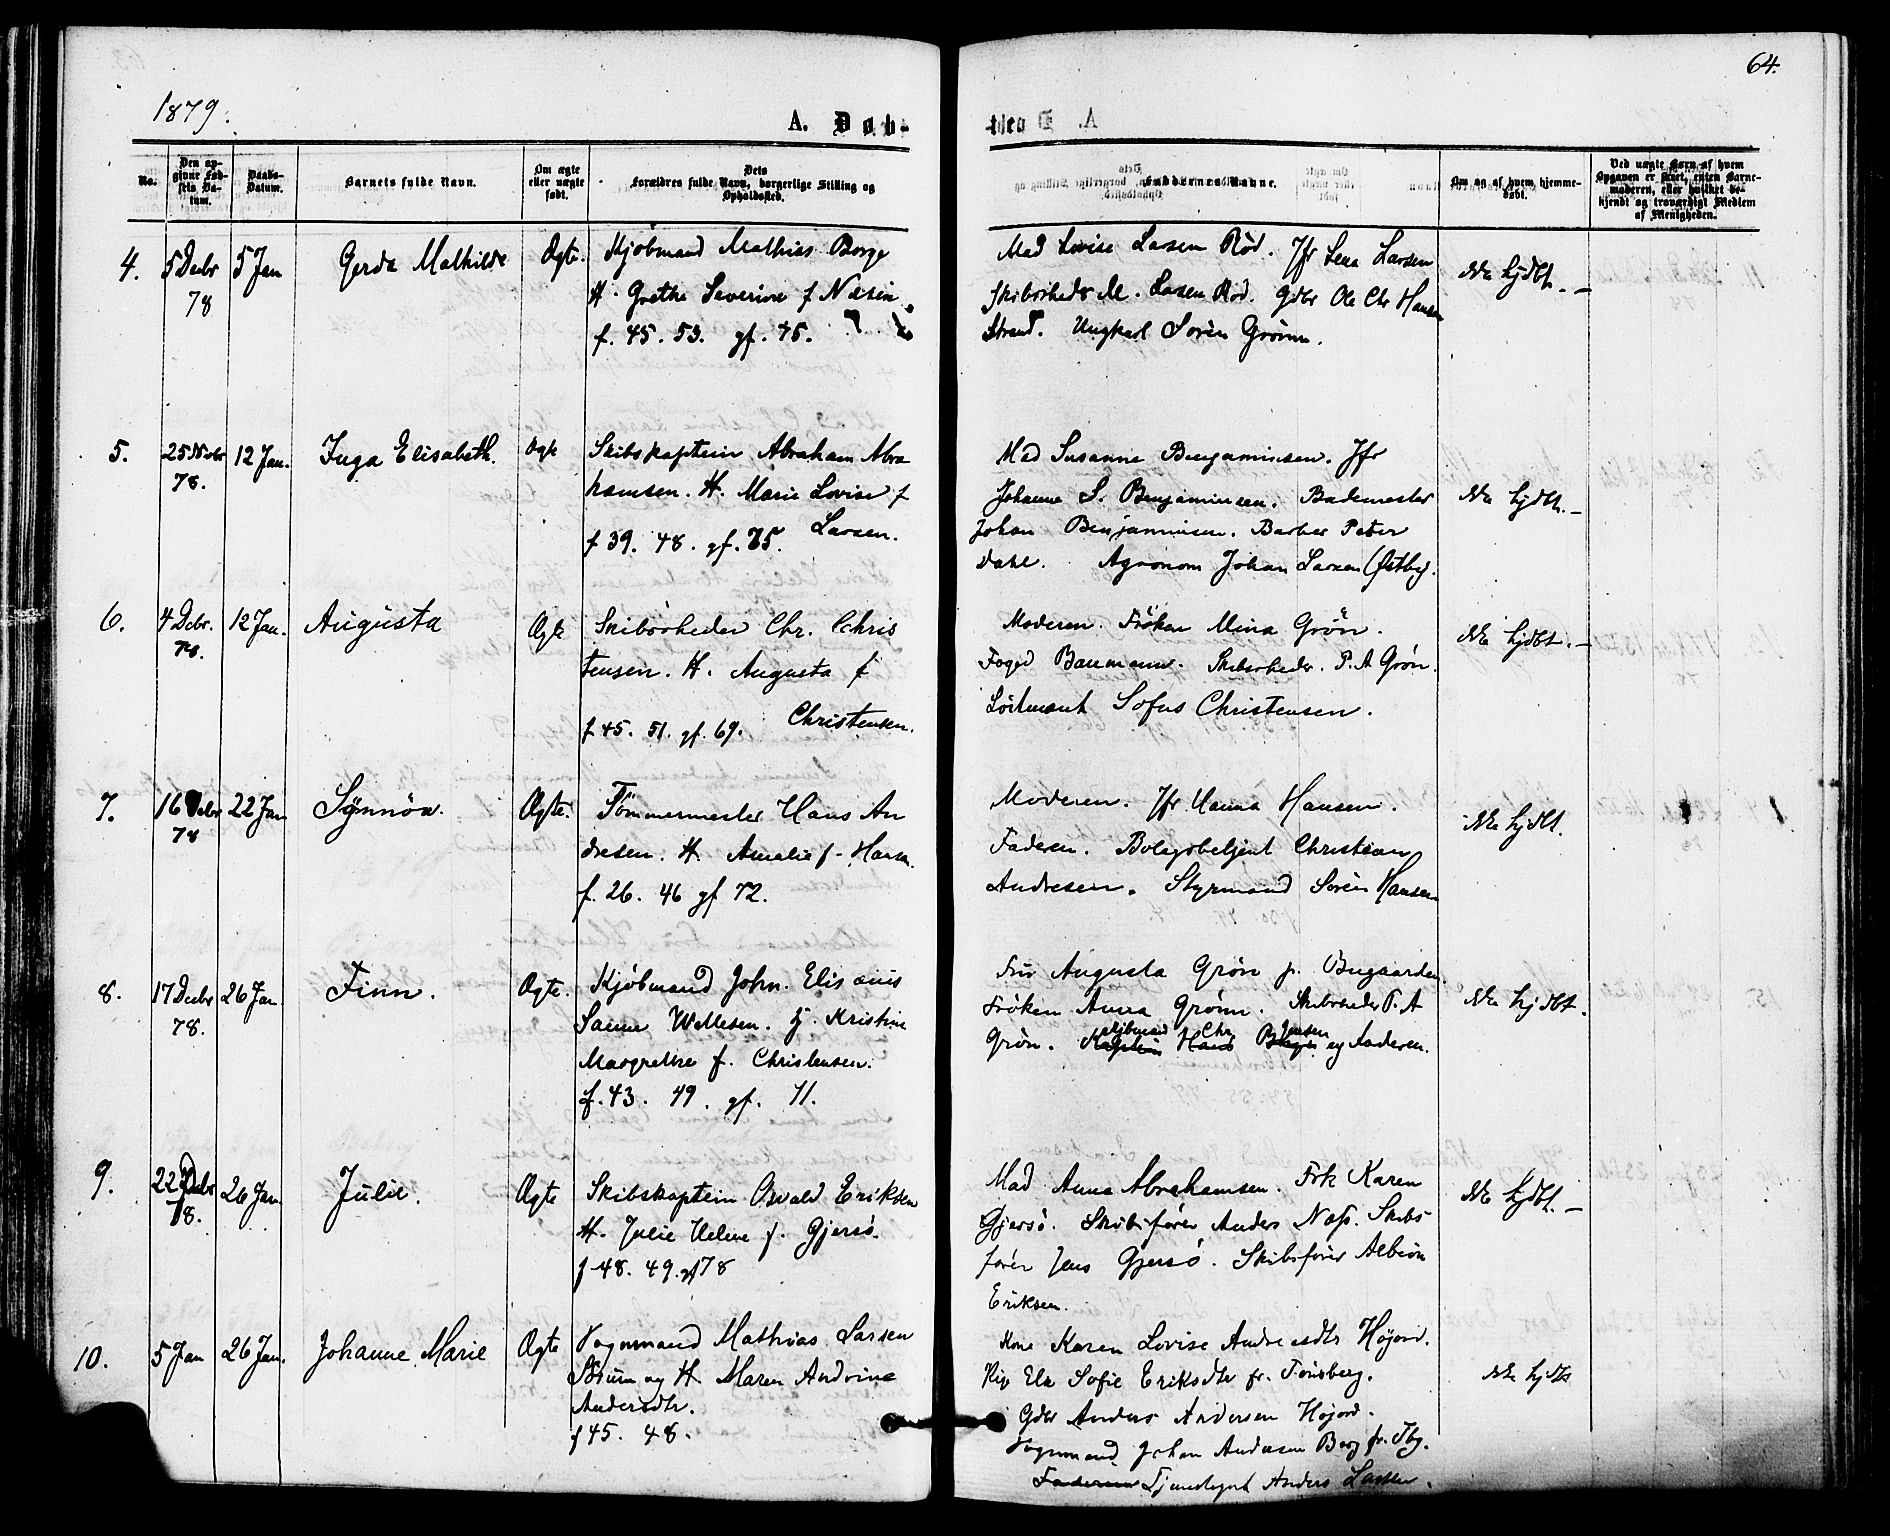 1879.
A. Døb-
64.
No.
Den opgivne Fødsels Datum.
Daabs-Datum.
Barnets fulde Navn.
Om ægte eller uægte født.
Dets Forældres fulde Navn, borgerlige Stilling og Opholdssted.
Faddernes Navne.
Om og af hvem hjemmedøbt.
Ved uægte Børn af hvem Opgaven er skeet, enten Barnemoderen, eller hvilket bekjendt og troværdigt Medlem af Menigheden.
4. 5 Decbr 78 5 Jan Gerda Mathilde Ægte.
Kjöbmand Mathias Borge
H. Grethe Severine f Næsen
f. 45. 53. gf. 75.
Mad Lovise Lasen Röd. Jfr Lena Larsen
Skibsrheder M. Lasen Röd. Gdbr Ole Chr Hansen
Strand. Ungkarl Sören Grönn.
Ikke hjdbt.
5. 25 Novbr 78. 12 Jan. Inga Elisabeth. Ægte
Skibskaptein Abraham Abra
hamsen. H. Marie Lovise f
f 39. 48. gf. 75. Larsen.
Mad Susanne Benjaminsen. Jfr
Johanne S. Benjaminsen. Bademester
Johan Benjaminsen. Barber Peter
Dahl. Agronom Johan Larsen (Østby.
Ikke hjdbt.
6. 4 Decbr. 78. 12 Jan. Augusta Ægte
Skibsrheder Chr. Chris
tensen. H. Augusta f
f 45. 51. gf. 69. Christensen.
Moderen. Fröken Mina Grön.
Foged Baumann. Skibsrheder. P. A Grön.
Löitenant Sofus Christensen.
Ikke hjdbt.
7. 16 Decbr 78 22 Jan Synnöva. Ægte.
Tömmermester Hans An
dresen. H. Amalie f. Hansen
f. 26. 46 gf 72.
Moderen. Jfr Hanna Hansen.
Faderen. Bolagsbetjent Christian
Andresen. Styrmand Sören Hansen
Ikke hjdbt.
8. 17 Decbr 78. 26 Jan. Finn. Ægte.
Kjöbmand John. Elisæus
Sanne Willesen. H. Kristine
Margrethe f. Christensen.
f. 43. 49. gf. 71.
Fru Augusta Grön f. Bugaarden
Fröken Anna Grönn. Skibsrheder P. A
Grön. Kjöbmand Chr. Jensen og Faderen.
Ikke hjdbt.
9. 22 Decbr 78. 26 Jan Julie. Ægte
Skibskaptein Osvald Eriksen
H. Julie Helene f. Gjersö.
f 48. 49. gf 78
Mad Anna Abrahamsen. Frk Karen
Gjersö. Skibsförer Anders Næss. Skibs-
förer Jens Gjersö. Skibsförer Albion
Eriksen.
Ikke hjdbt.
10. 5 Jan 26 Jan. Johanne Marie Ægte
Vognmand Mathias Larsen
og H. Maren Andrine
Andersdtr.
f 45. 48.
Kone Karen Lovise Andreasdtr Höjord.
Pige Else Sofie Eriksdtr fr. Tönsberg.
Gdbr Anders Andersen Höjord.
Vognmand Johan Andersen Berg fr. Tbg.
Faderen Tjenestegut Anders Larsen.
Ikke hjdbt